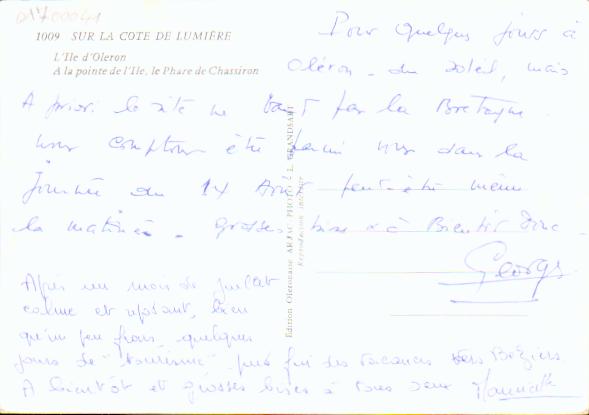 D1700041
1009 SUR LA COTE DE LUMIÈRE
L'Ile d'Oleron
A la pointe de l'Ile, le Phare de Chassiron
Pour quelques jours à
Oléron - du soleil, mais
A priori le site ne vaut pas la Bretagne.
nous comptons être parmi vous dans la
Journée du 14 Août peut-être même
la matinée - grosses bises à Bientôt donc -
Georges
Edition Oleronaise ARJAC PHOTO : L. GRANDSART
Reproduction interdite
Après un mois de juillet
calme et reposant, bien
qu'un peu frais, quelques
jours de "tourisme" puis fin des vacances vers Béziers.
A bientôt et grosses bises à tous deux